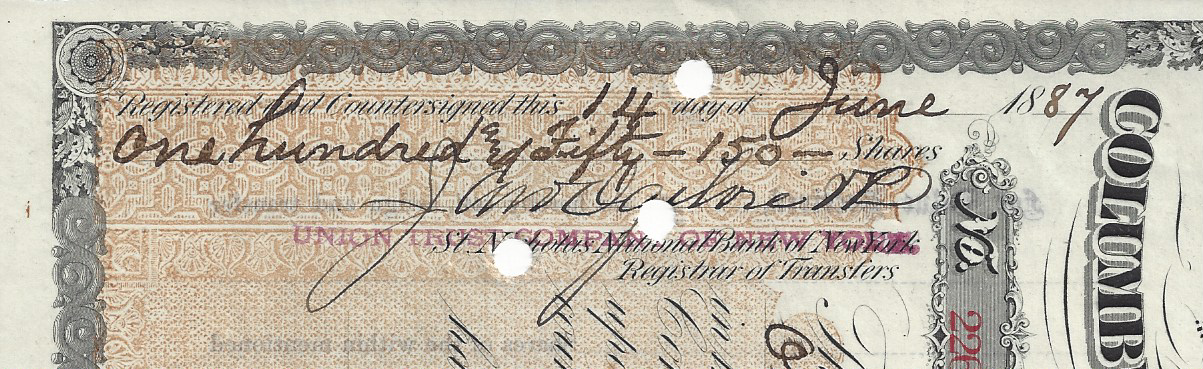 Registered and Countersigned this 14 day of June 1887
One hundred & Fifty - 150 - Shares
UNION TRUST COMPANY OF NEW YORK
St. Nicholas National Bank of New York
Registrar of Transfers
COLUMB
No.
220